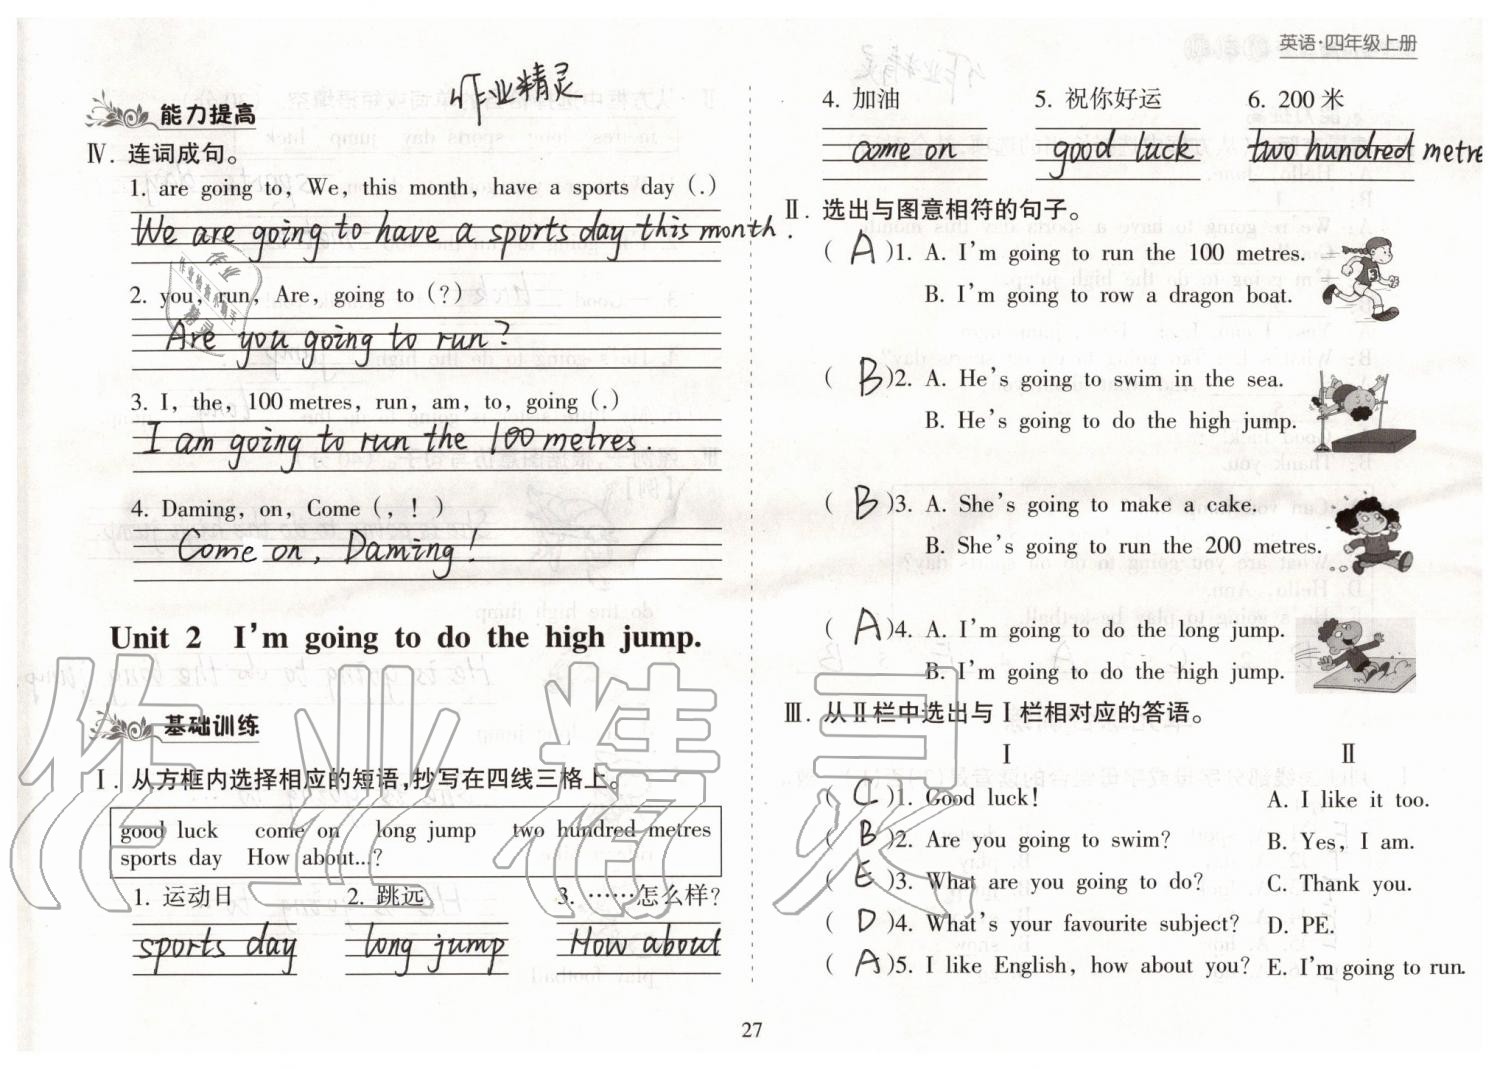 英语·四年级上册
作业精灵
能力提高
Ⅳ. 连词成句。
1. are going to, We, this month, have a sports day (.)
We are going to have a sports day this month.
2. you, run, Are, going to (?)
Are you going to run?
3. I, the, 100 metres, run, am, to, going (.)
I am going to run the 100 metres.
4. Daming, on, Come (, !)
Come on, Daming!
Unit 2 I'm going to do the high jump.
基础训练
Ⅰ. 从方框内选择相应的短语,抄写在四线三格上。
good luck come on long jump two hundred metres
sports day How about...?
1. 运动日 2. 跳远 3. ……怎么样?
sports day long jump How about
4. 加油 5. 祝你好运 6. 200 米
come on good luck two hundred metre
Ⅱ. 选出与图意相符的句子。
( A )1. A. I'm going to run the 100 metres.
B. I'm going to row a dragon boat.
( B )2. A. He's going to swim in the sea.
B. He's going to do the high jump.
( B )3. A. She's going to make a cake.
B. She's going to run the 200 metres.
( A )4. A. I'm going to do the long jump.
B. I'm going to do the high jump.
Ⅲ. 从Ⅱ栏中选出与Ⅰ栏相对应的答语。
Ⅰ Ⅱ
( C )1. Good luck! A. I like it too.
( B )2. Are you going to swim? B. Yes, I am.
( E )3. What are you going to do? C. Thank you.
( D )4. What's your favourite subject? D. PE.
( A )5. I like English, how about you? E. I'm going to run.
27
作业精灵